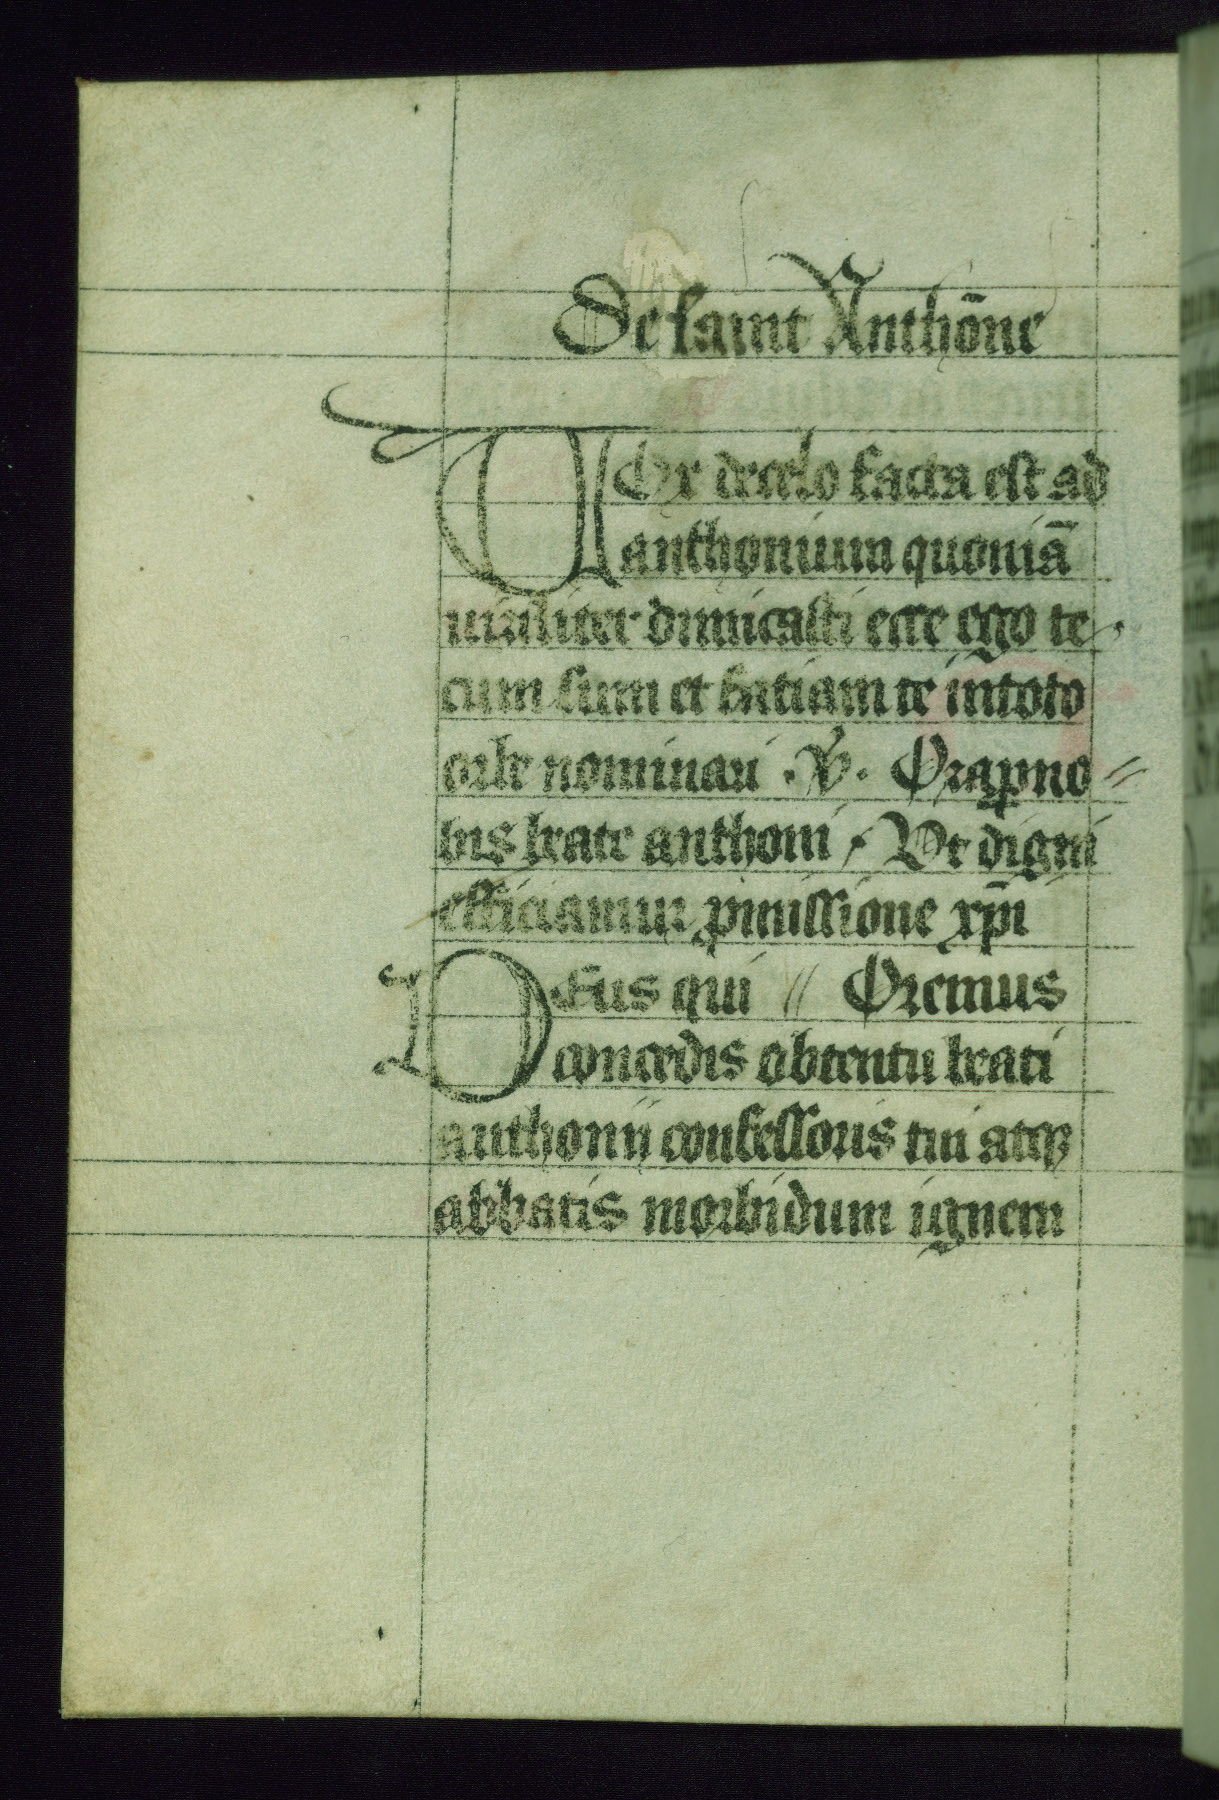 De saint Anthōne
VOx de celo facta est ad
anthonium quoniā
uiriliter dimicasti ecce ego te
cum sum et fatiam te in toto
orbe nominari . ℣. Ora p no⸗
bis beate anthoni / Vt digni
efficiamur pmissione xp̄i
DEus qui // Oremus
concedis obtentu beati
anthonij confessoris tui atqꝫ
abbatis morbidum ignem